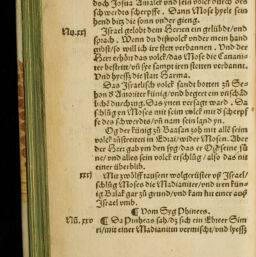 doch Josua Amalek vnd sein volck durch des
schwerdes scherpffe. Dann Mose hyelt sein
hend biß die sonn vnder gieng.
Nu.xxj Israel gelobt dem Herren ein gelübde/vnd
sprach. Wenn du dis volck vnder mein hand
gibst/so will ich ire stett verbannen. Vnd der
Herr erhört das volck/das Mose die Cananiter
bestritt/vñ sye sampt iren stetten verbandt.
Vnd hyeß die statt Harma.
Das Israelisch volck sandt botten zů Sehon
der Amoriter künig/vnd begeret ein vnschädliche
durchzug. Das ynen versagt ward. Da
schlůg yn Moses mit seim volck mit der scherpffe
des schwerdes/vñ nam sein land yn.
Og der künig vß Basan zoh mit alle seim
volck zů streiten in Edrai/wider Mosen. Aber
der Herr gab ym den syg/das er Og/seine süne/
vnd alles sein volck erschlůg/also das nit
einer überblib.
xxxj Mit zwölff tausent wolgerüster vß Israel/
schlůg Moses die Madianiter/vnd iren künig
Balak gar zů grund/vnd kam nit einer auß
Israel vmb.
¶ Vom Syg Phinees.
Nu. xxv ¶ Da Pinehas sah/das sich ein Ebreer Simri/
mit einer Madianitin vermischt/vnd hyeß